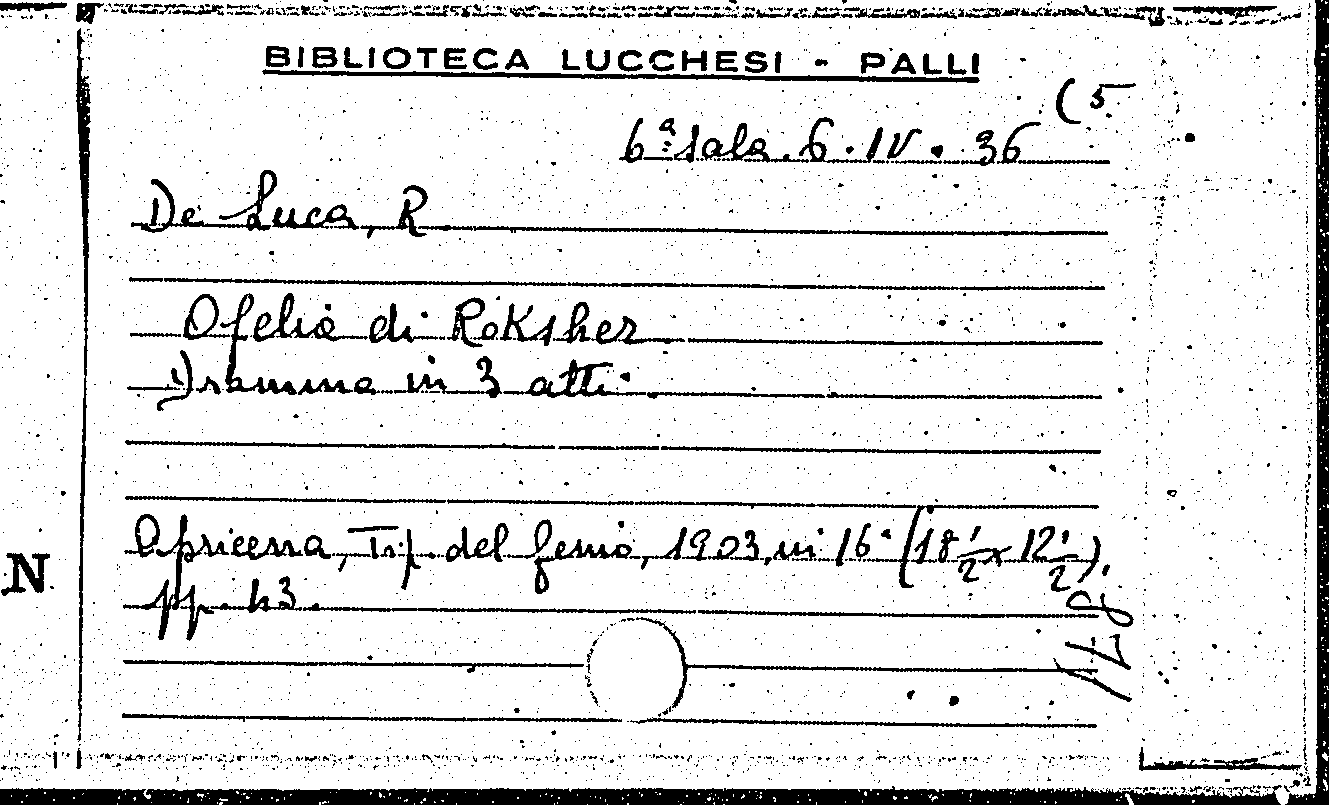 BIBLIOTECA LUCCHESI - PALLI
(5
6ª sala. 6. IV. 36
De Luca, R.
Ofelia di Roksher
Dramma in 3 atti.
Apricena, Tip. del Genio, 1903, in 16° (18 1/2 x 12 1/2).
pp. 43.
N